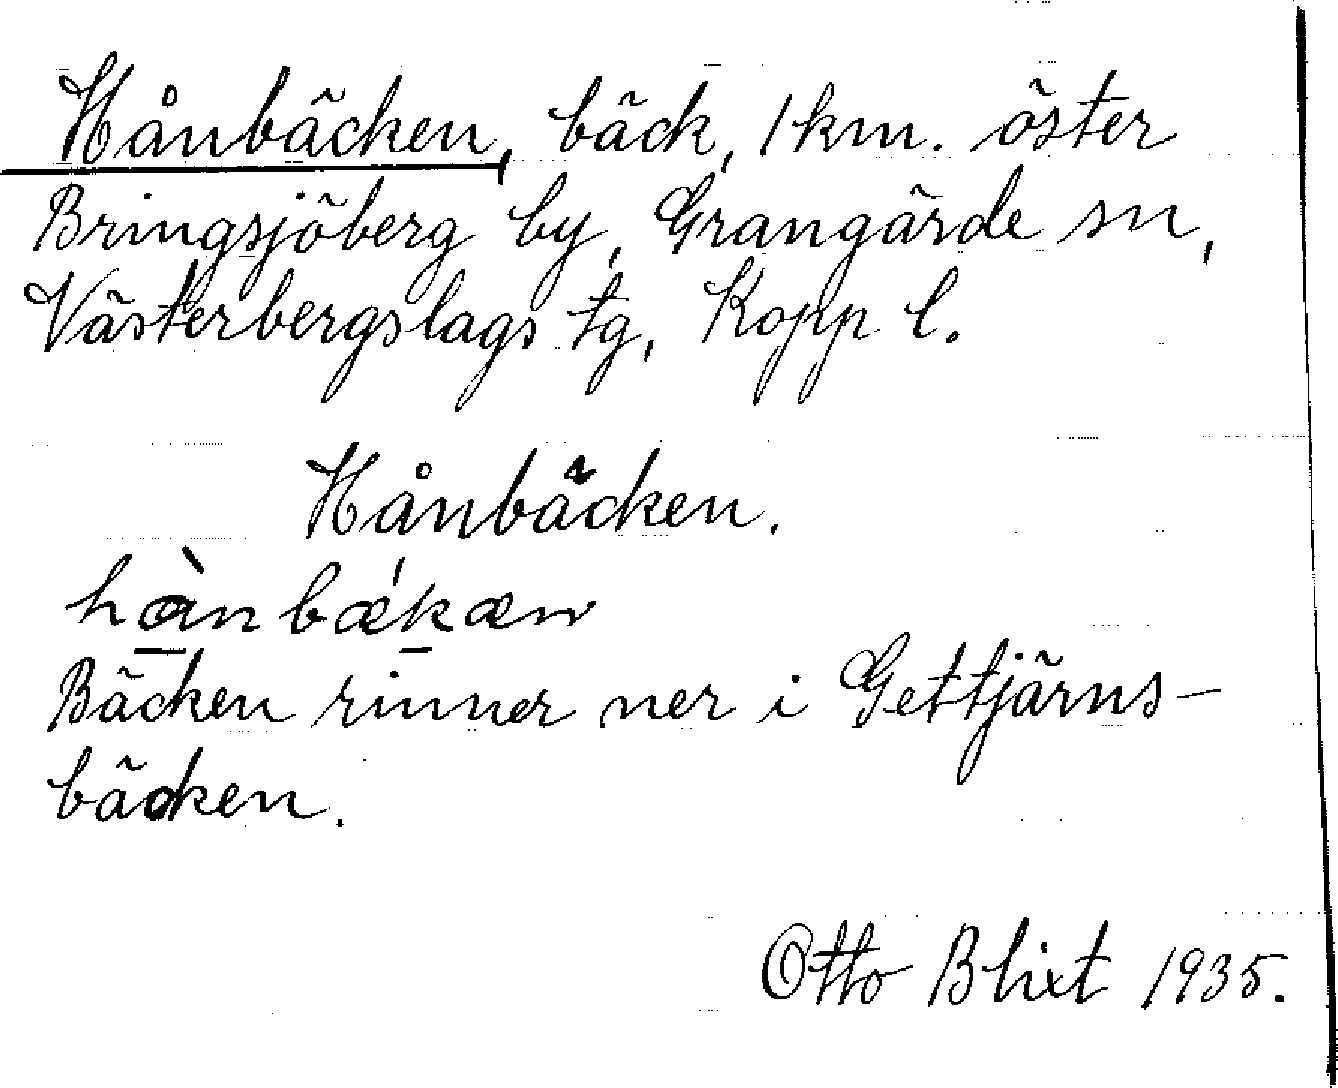 Hånbäcken, bäck, 1 km. öster
Bringsjöberg by, Grangärde sn,
Västerbergslags tg, Kopp l.
Hånbäcken.
hὰnbækæn
Bäcken rinner ner i Gettjärns-
bäcken.
Otto Blixt 1935.